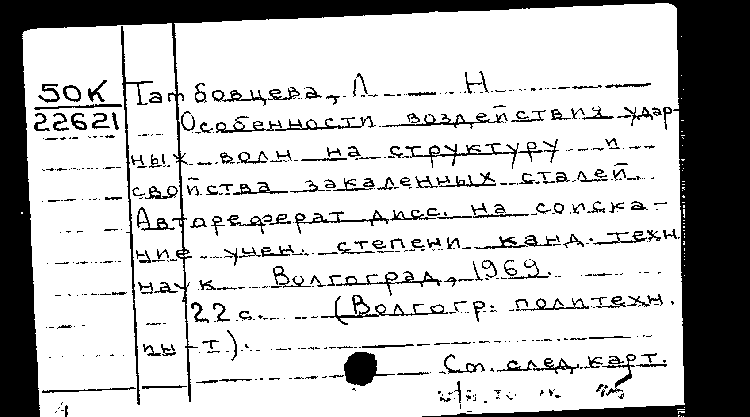 50К
22621
Тамбовцева, Л Н
Особенности воздействия удар-
ных волн на структуру и
свойства закаленных сталей.
Автореферат дисс. на соиска-
ние учен. степени канд. техн.
наук Волгоград, 1969.
22 с. (Волгогр. политехн.
ны-т).
См. след. карт.